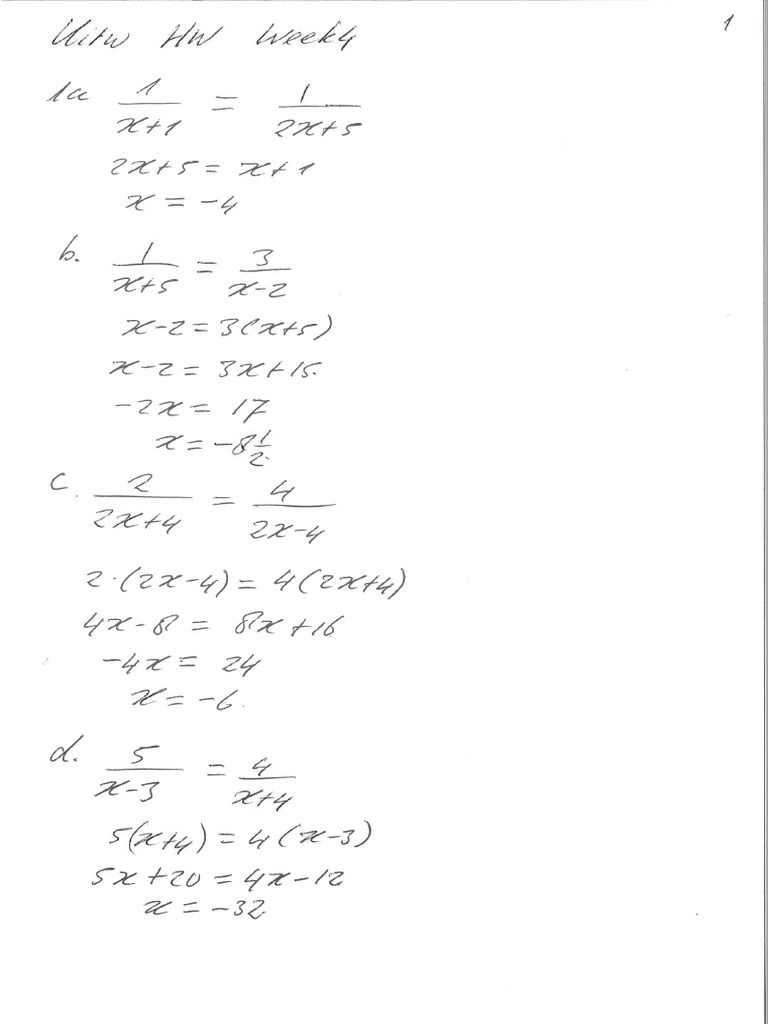 Uitw HW Week4
1
1a 1/(x+1) = 1/(2x+5)
2x+5 = x+1
x = -4
b. 1/(x+5) = 3/(x-2)
x-2 = 3(x+5)
x-2 = 3x+15.
-2x = 17
x = -8 1/2
c. 2/(2x+4) = 4/(2x-4)
2·(2x-4) = 4(2x+4)
4x-8 = 8x+16
-4x = 24
x = -6.
d. 5/(x-3) = 4/(x+4)
5(x+4) = 4(x-3)
5x+20 = 4x-12
x = -32.